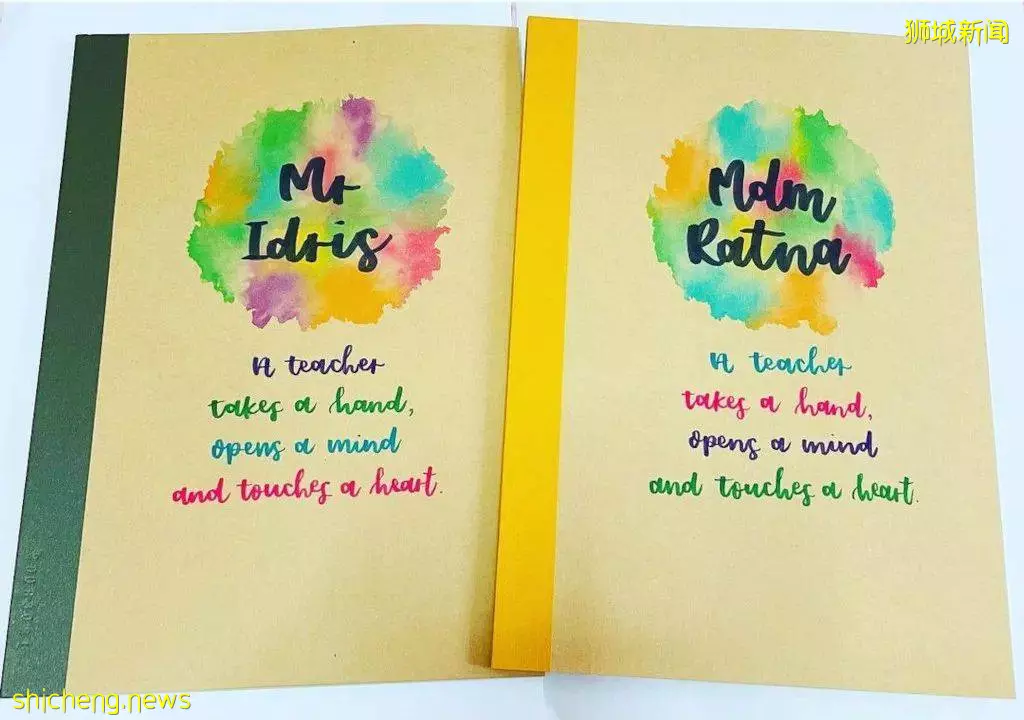 狮城新闻
Mr
Idris
A teacher
takes a hand,
opens a mind
and touches a heart.
Mdm
Ratna
A teacher
takes a hand,
opens a mind
and touches a heart.
shicheng.news